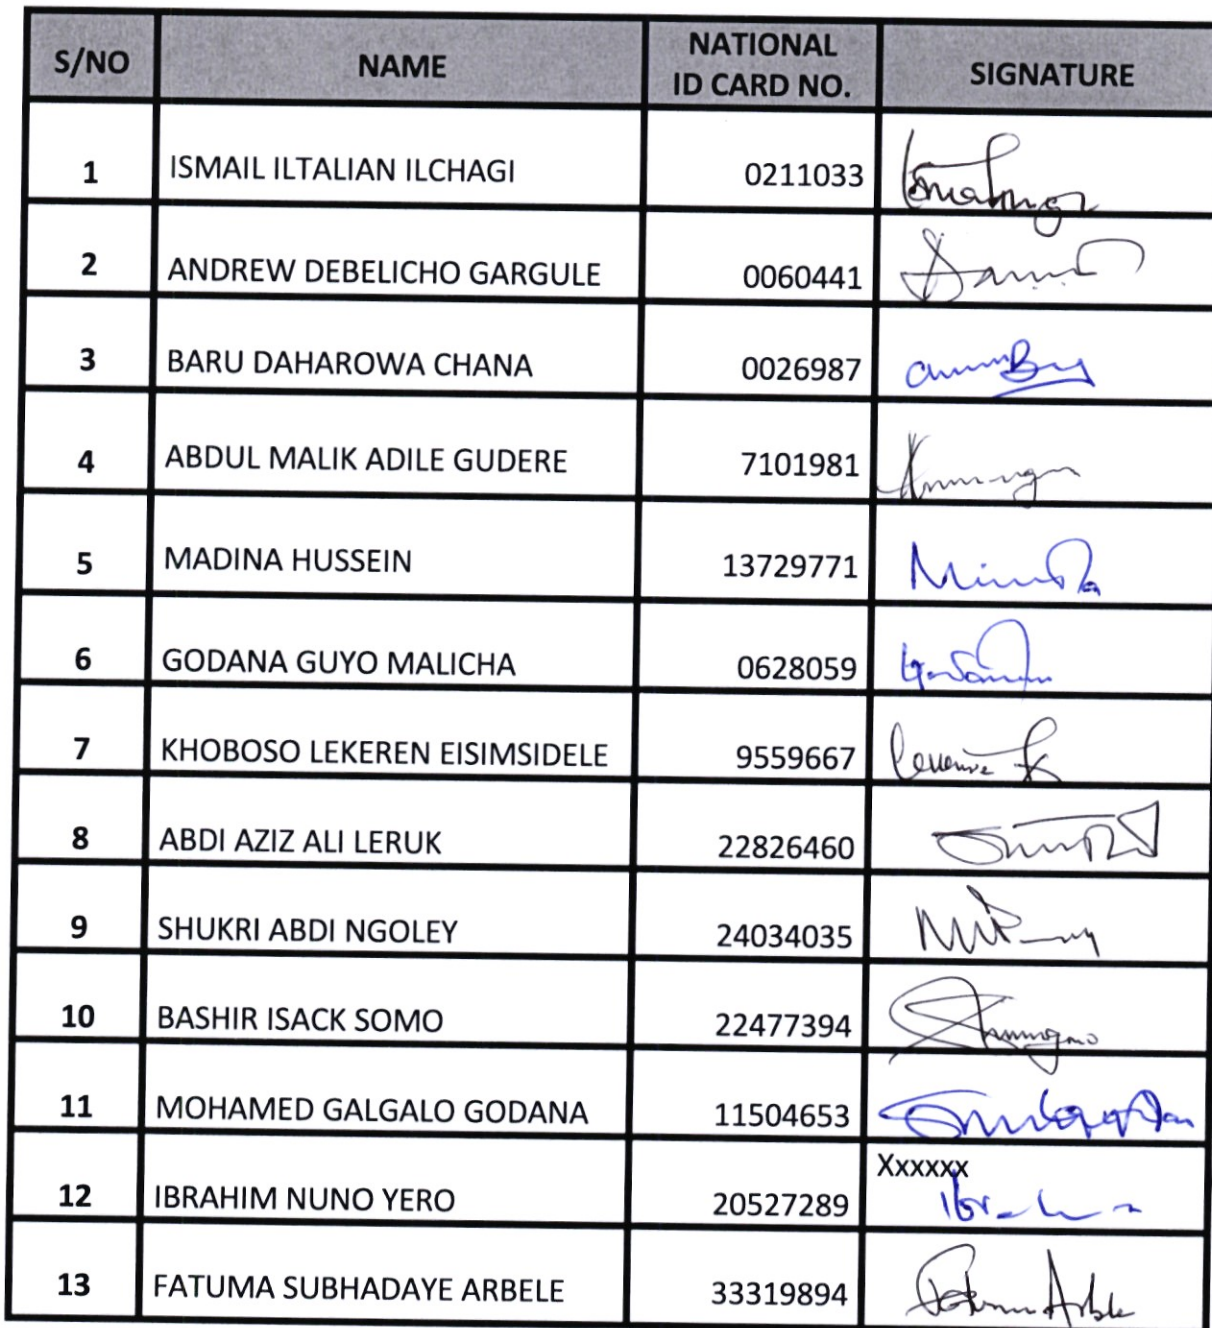 S/NO NAME NATIONAL ID CARD NO. SIGNATURE
1 ISMAIL ILTALIAN ILCHAGI 0211033
2 ANDREW DEBELICHO GARGULE 0060441
3 BARU DAHAROWA CHANA 0026987
4 ABDUL MALIK ADILE GUDERE 7101981
5 MADINA HUSSEIN 13729771
6 GODANA GUYO MALICHA 0628059
7 KHOBOSO LEKEREN EISIMSIDELE 9559667
8 ABDI AZIZ ALI LERUK 22826460
9 SHUKRI ABDI NGOLEY 24034035
10 BASHIR ISACK SOMO 22477394
11 MOHAMED GALGALO GODANA 11504653
12 IBRAHIM NUNO YERO 20527289 Xxxxxx
13 FATUMA SUBHADAYE ARBELE 33319894